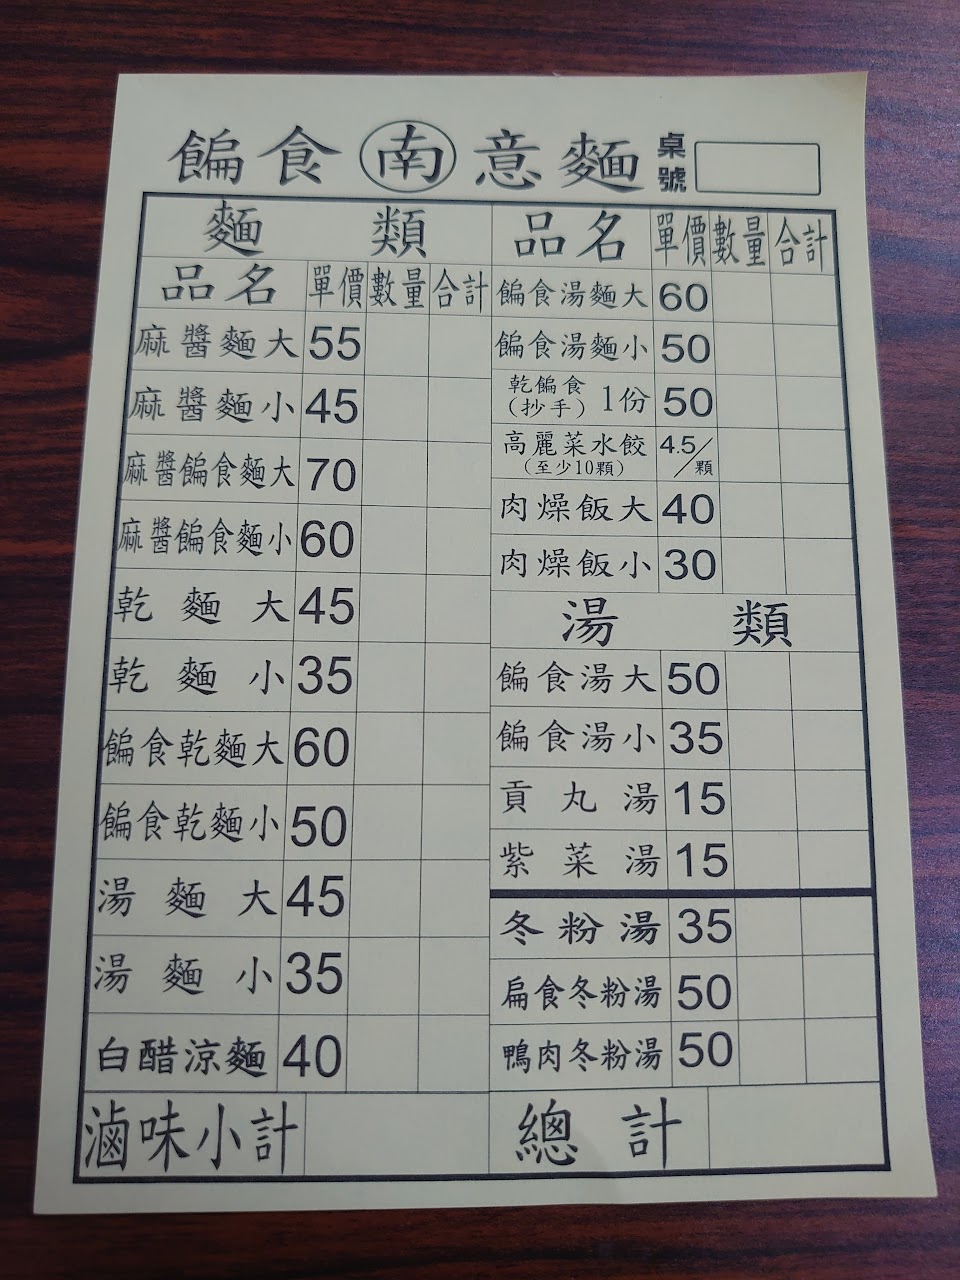 餶食 南 意麵 桌號
麵 類
品名 單價 數量 合計
麻醬麵大 55
麻醬麵小 45
麻醬餶食麵大 70
麻醬餶食麵小 60
乾麵大 45
乾麵小 35
餶食乾麵大 60
餶食乾麵小 50
湯麵大 45
湯麵小 35
白醋涼麵 40
滷味小計
品名 單價 數量 合計
餶食湯麵大 60
餶食湯麵小 50
乾餶食(抄手) 1份 50
高麗菜水餃(至少10顆) 4.5/顆
肉燥飯大 40
肉燥飯小 30
湯 類
餶食湯大 50
餶食湯小 35
貢丸湯 15
紫菜湯 15
冬粉湯 35
扁食冬粉湯 50
鴨肉冬粉湯 50
總計